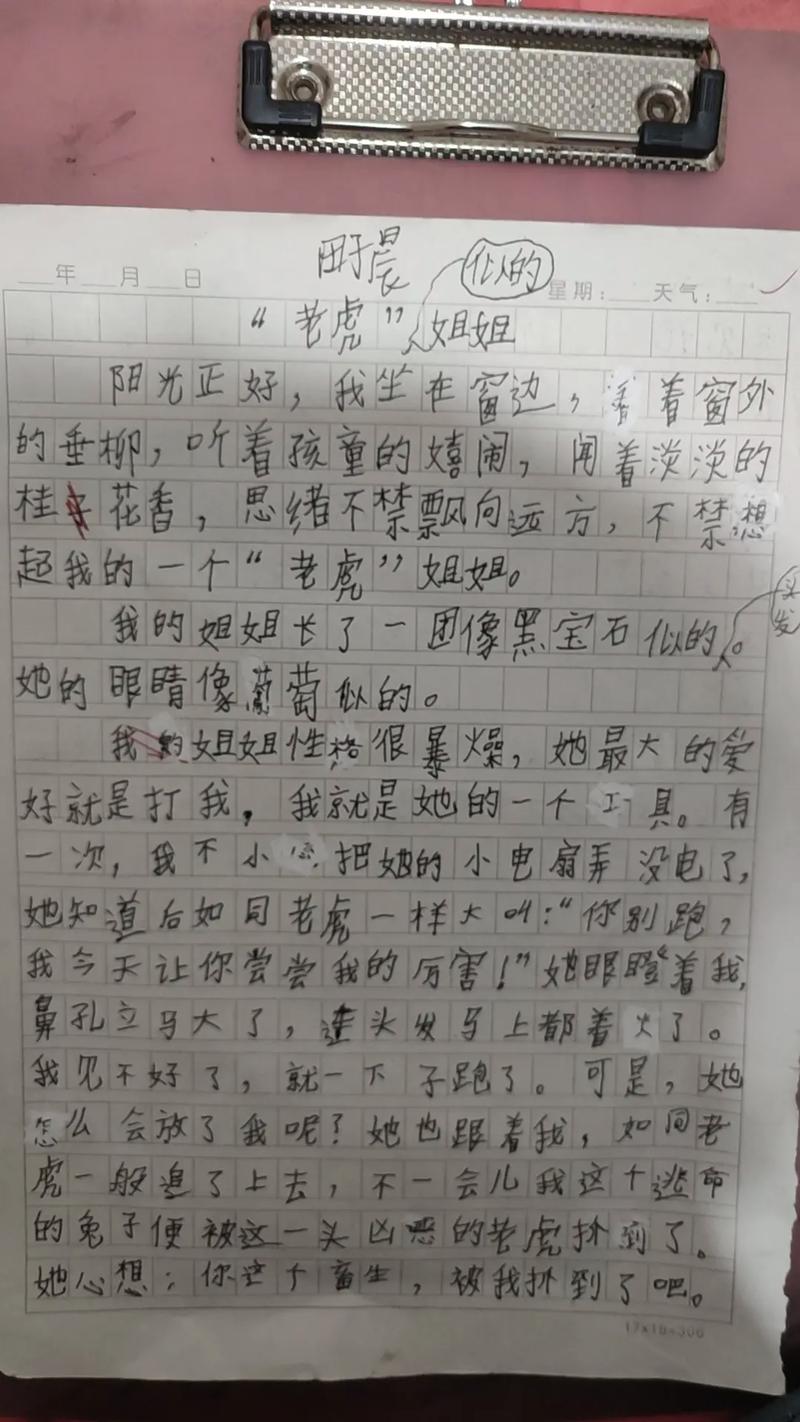 田于晨
似的
年 月 日 星期: 天气:
“老虎”姐姐
阳光正好，我坐在窗边，看着窗外
的垂柳，听着孩童的嬉闹，闻着淡淡的
桂花香，思绪不禁飘向远方，不禁想
起我的一个“老虎”姐姐。
头发
我的姐姐长了一团像黑宝石似的。
她的眼睛像葡萄似的。
我的姐姐性格很暴燥，她最大的爱
好就是打我，我就是她的一个工具。有
一次，我不小心把她的小电扇弄没电了，
她知道后如同老虎一样大叫：“你别跑，
我今天让你尝尝我的厉害！”她眼瞪着我，
鼻孔立马大了，连头发马上都着火了。
我见不好了，就一下子跑了。可是，她
怎么会放了我呢？她也跟着我，如同老
虎一般追了上去，不一会儿我这个逃命
的兔子便被这一头凶恶的老虎扑到了。
她心想：你这个畜生，被我扑到了吧。
17×18=306